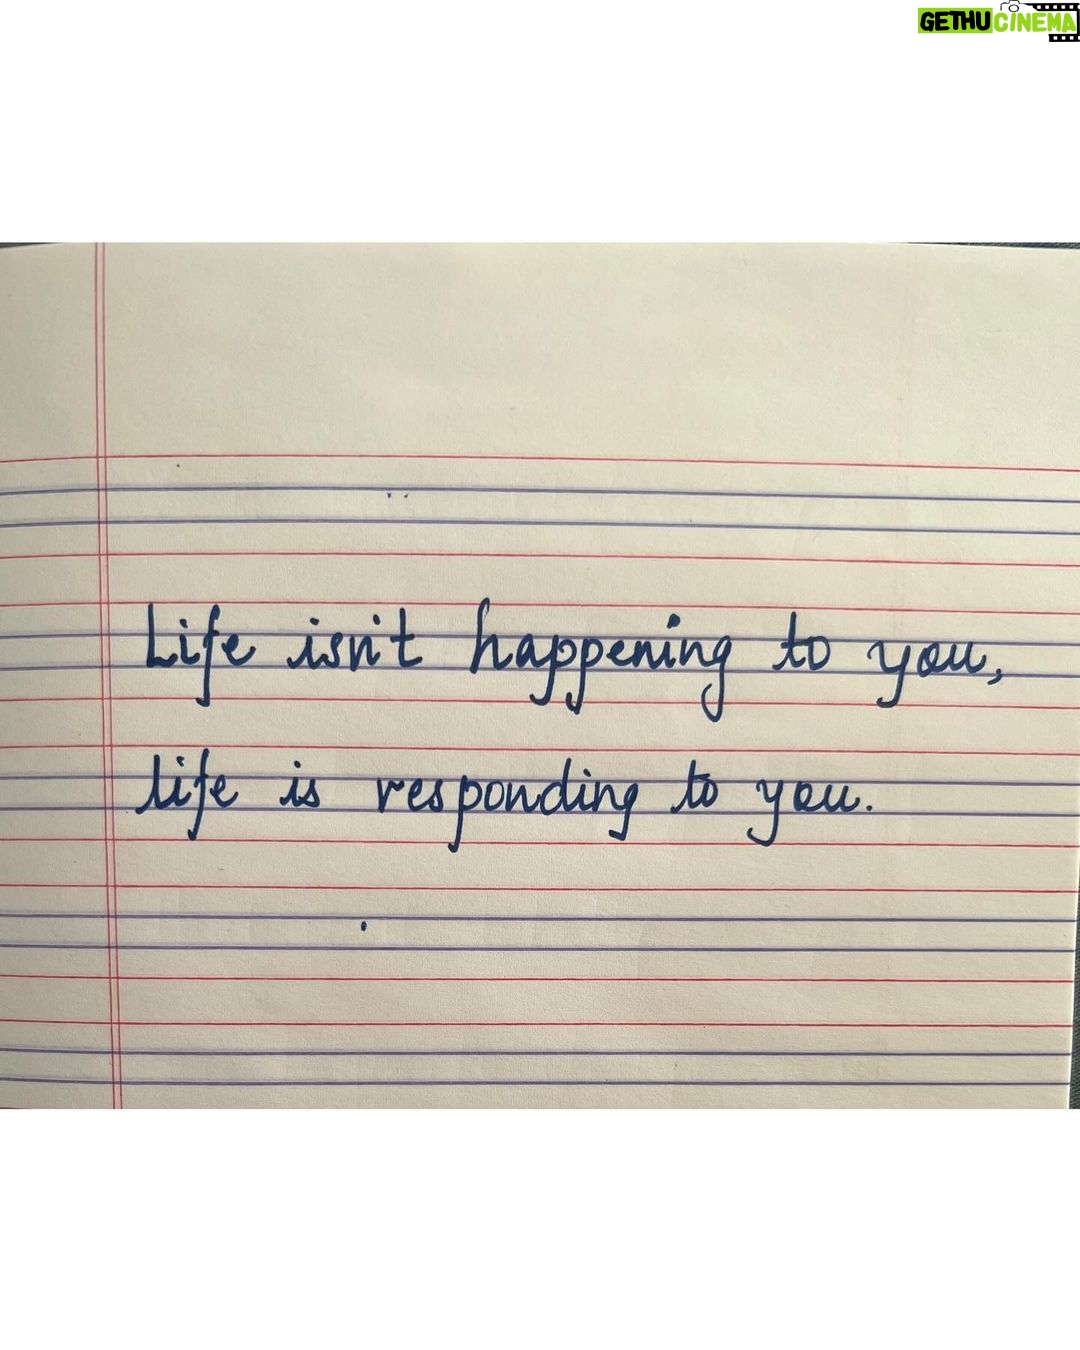 GETHUCINEMA
Life isn't happening to you,
life is responding to you.